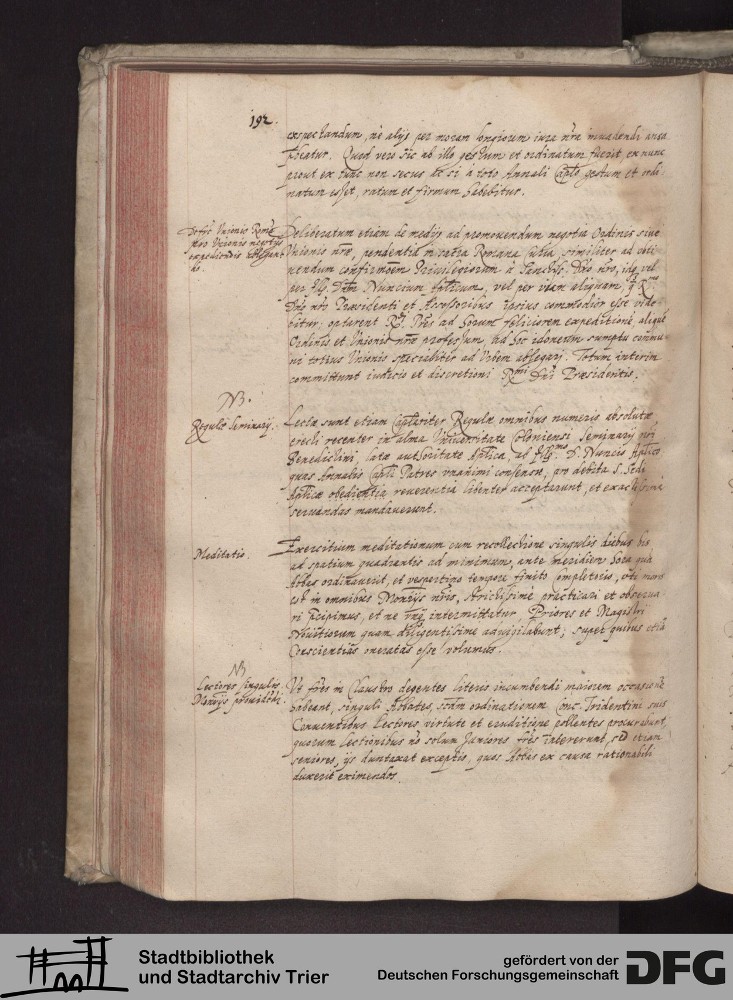 192.
exspectandum, ne alijs per moram longiorem iura nra inuadendi ansa
pbeatur. Quod vero sic ab illo gestum et ordinatum fuerit, ex nunc
prout ex tunc non secus ac si à toto Annali Caplo gestum et ordi-
natum esset, ratum et firmum habebitur.
Unionis Romæ
Unionis negotijs
expediendis
Deliberatum etiam de medijs ad promouendum negotia Ordinis siue
Unionis nræ, pendentia in Romana Curia, similiter ad obti-
nendum confirmõem Priuilegiorum à Dno nro, idq vel
per Nuncium Aplicum, vel per viam aliquam,
Dno nro Præsidenti et Assessoribus ipsius commodior esse vide-
bitur, optarent Rdi Pres ad horum feliciorem expeditionẽ, aliquẽ
Ordinis et Unionis nræ professum, ad hoc idoneum sumptu commu-
ni totius Unionis specialiter ad Vrbem ablegari. Totum interim
committunt iudicio et discretioni Rmi Dni Præsidentis.
NB.
Regulæ Seminarij.
Lectæ sunt etiam Caplariter Regulæ omnibus numeris absolutæ
erecti recenter in alma Vniuersitate Coloniensi Seminarij nri
Benedictini, latæ authoritate Aplica, ab Illmo D. Nuncio Aplico
quas Annalis Capli Patres vnanimi consensu, pro debita S. Sedi
Aplicæ obedientia reuerentia libenter acceptarunt, et exactissimè
seruandas mandauerunt.
Meditatio.
Exercitium meditationum cum recollectione singulis diebus bis
ad spatium quadrantis ad minimum, ante meridiem hora quâ
Abbas ordinauerit, et vespertino tempore finito completorio, vti moris
est in omnibus Monrijs nris, strictissimè practicari et obserua-
ri pcipimus, et ne vnq intermittatur Priores et Magistri
Nouitiorum quam diligentissime aduigilabunt, super quibus etiã
Conscientias oneratas esse volumus.
NB
Lectores singulis
Monrijs prouidẽdi.
Vt fres in Claustro degentes literis incumbendi maiorem occasionẽ
habeant, singuli Abbates, scdm ordinationem Conc. Tridentini suis
Conuentibus Lectores virtute et eruditione pollentes procurabunt,
quorum lectionibus nõ solum Juniores fres intererunt, sed etiam
seniores, ijs duntaxat exceptis, quos Abbas ex causa rationabili
duxerit eximendos.
Stadtbibliothek
und Stadtarchiv Trier
gefördert von der
Deutschen Forschungsgemeinschaft
DFG